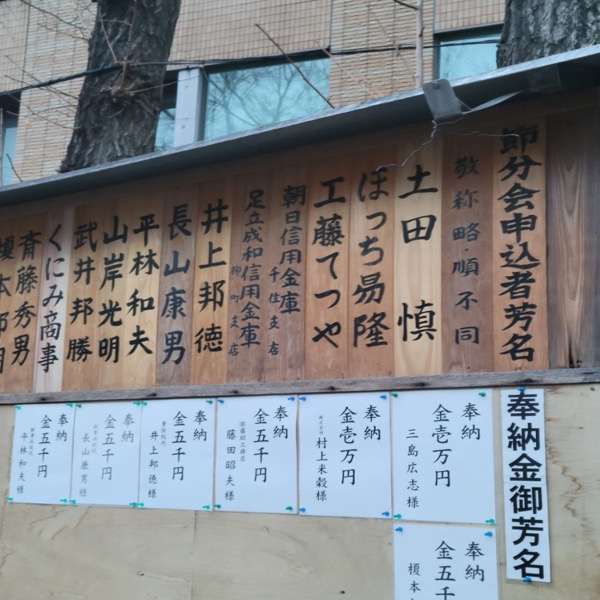 節分会申込者芳名
敬称略・順不同
土田 慎
ほっち易隆
工藤てつや
朝日信用金庫
千住支店
足立成和信用金庫
柳町支店
井上邦徳
長山康男
平林和夫
山岸光明
武井邦勝
くにみ商事
斎藤秀男
奉納金御芳名
奉納
金壱万円
三島広志様
奉納
金壱万円
株式会社
村上米穀様
奉納
金五千円
藤田昭夫様
奉納
金五千円
井上邦徳様
奉納
金五千円
長山康男様
奉納
金五千円
平林和夫様
奉納
金五千
榎本